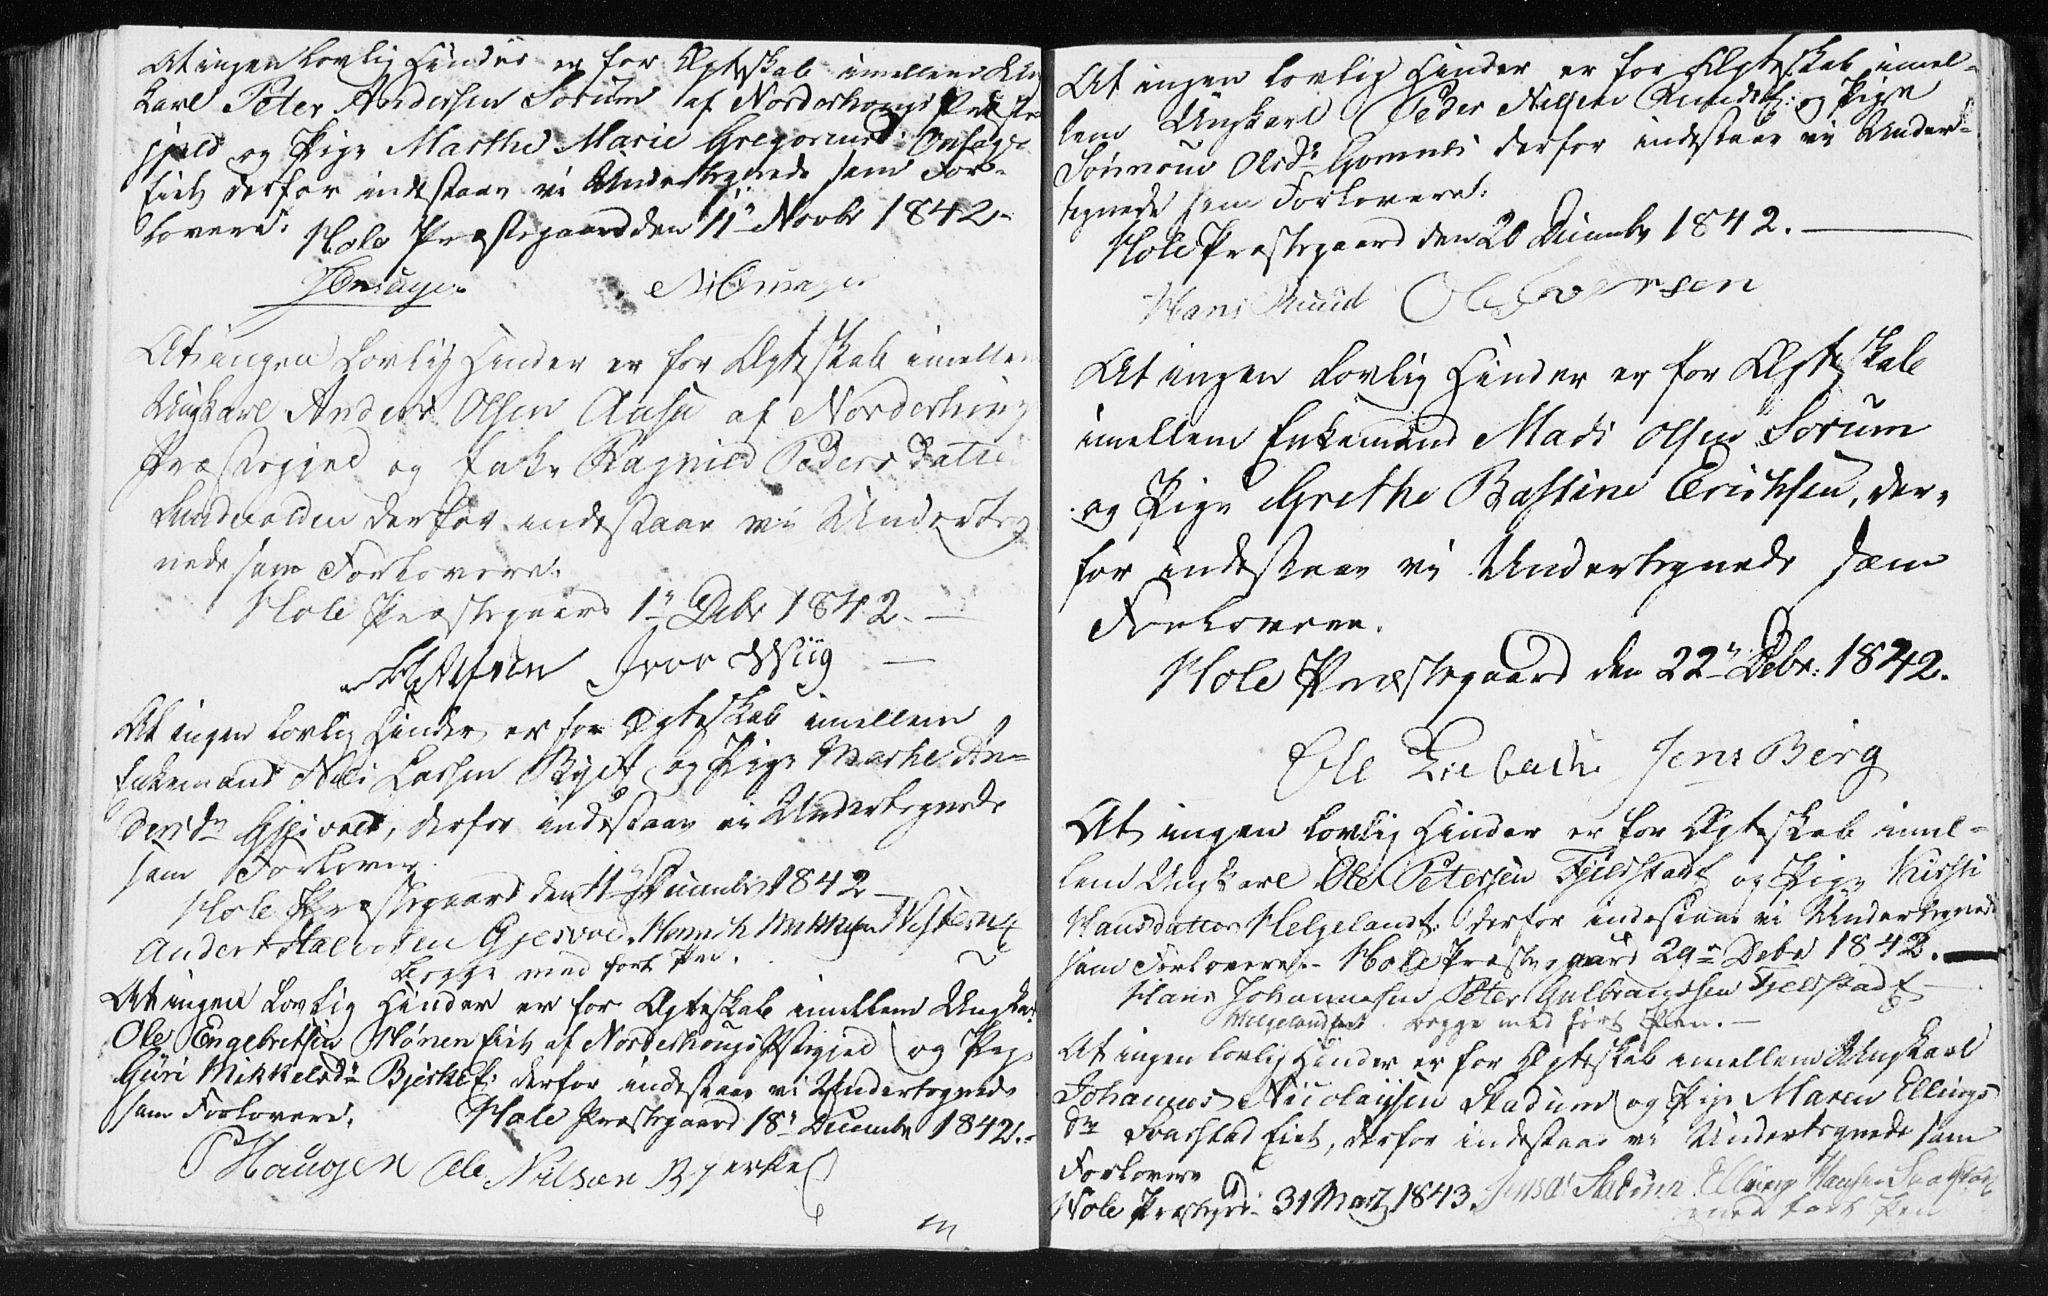 At ingen lovlig Hinder er for Ægteskab imellem Ung
karl Peter Andersen Sørum af Norderhougs Præste
gjeld og Pige Marthe Marie Gregoriusd: Onsager
Eiet derfor indestaar vi Undertegnede som For-
lovere:
Hole Præstegaard den 11te Novbr 1842.
At ingen Lovlig Hinder er for Ægteskab imellem
Ungkarl Anders Olsen Aasa af Norderhougs
Præstegjeld og Enke Ragnild Pedersdatter
Sundvolden derfor indestaar vi Underteg
nede som Forlovere:
Hole Præstegaard 1te Debr 1842.
Iver Wiig
At ingen lovlig Hinder er for Ægteskab imellem
Enkemand Niels Larsen By Eie og Pige Marthe An-
dersdr Gjesvold, derfor indestaar vi Undertegnede
som Forlover
Hole Præstegaard den 11te December 1842
Anders Gjesvold. Henrich Mikkelsen
begge med ført Pen.
At ingen Lovlig Hinder er for Ægteskab imellem Ungkarl
Ole Engebretsen Mønen Eiet af Norderhougs Pstegjeld og Pige
Guri Mikkelsdr Bjerke E: derfor indestaar vi Undertegnede
som Forlovere.
Hole Præstegaard 18de December 1842.
P Haugen Ole Nilsen Bjerke
At ingen lovlig Hinder er for Ægteskab imel-
lem Ungkarl Peder Nilsen Rudse: og Pige
Olsdr Gomnæs derfor indestaar vi Under-
tegnede som Forlovere:
Hole Præstegaard den 20 December 1842.
Hans Ruud Ole Iversen
At ingen Lovlig Hinder er for Ægteskab
imellem Enkemand Mads Olsen Sørum
og Pige Grethe Bastine Erichsen, der-
for indestaar vi Undertegnede som
Forlovere.
Hole Præstegaard den 22de Debr: 1842.
Ole Jens Berg
At ingen lovlig Hinder er for Ægteskab imel-
lem Ungkarl Ole Petersen Fjeldstad E og Pige Kirsti
Hansdatter Helgeland E: derfor indestaar vi Undertegnede
som Forlovere. Hole Præstegaard 29de Debr 1842.
Hans Johannesen Peter Gulbrandsen Fjeldstad E
Helgeland Eiet begge med ført Pen.
At ingen lovlig Hinder er for Ægteskab imellem Ungkarl
Johannes Nicolaysen Stadum og Pige Maren Ellings
dr Svarstad Eiet, derfor indestaar vi Undertegnede som
Forlovere
Hole Præstegrd: 31 Marts 1843. Stadum Elling Hansen Svarstad
med ført Pen